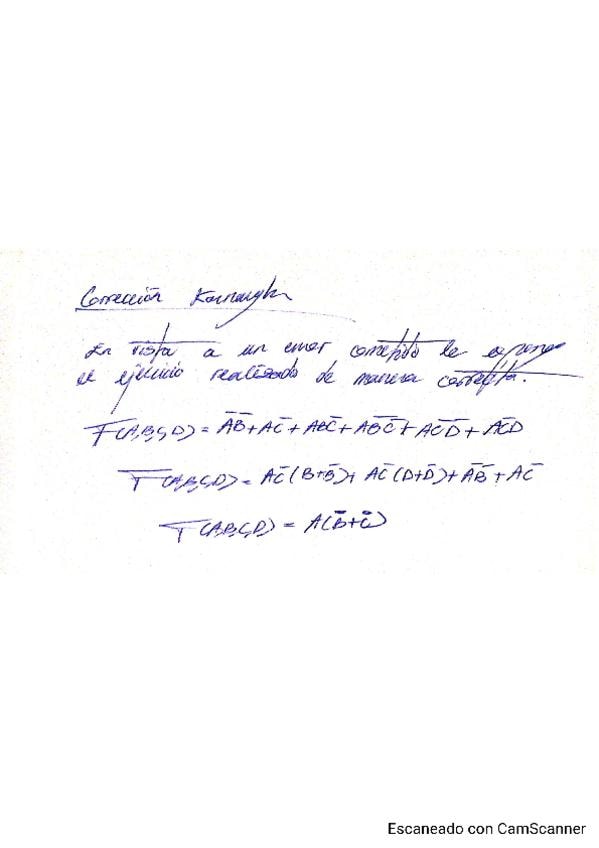 Corrección Karnaugh
En vista a un error cometido le expongo
el ejercicio realizado de manera correcta.
F(A,B,C,D) = AB̅ + AC̅ + ABC̅ + AB̅C̅ + AC̅D̅ + AC̅D
F(A,B,C,D) = AC̅(B+B̅) + AC̅(D+D̅) + AB̅ + AC̅
F(A,B,C,D) = A(B̅+C̅)
Escaneado con CamScanner